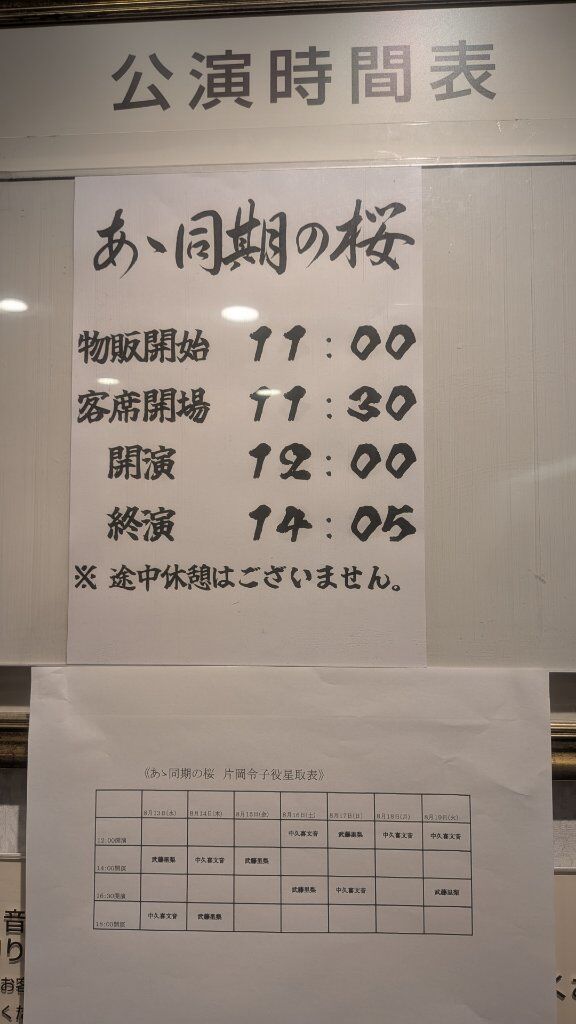 公演時間表
あゝ同期の桜
物販開始 11:00
客席開場 11:30
開演 12:00
終演 14:05
※ 途中休憩はございません。
《あゝ同期の桜 片岡令子役星取表》
8月13日(水) 8月14日(木) 8月15日(金) 8月16日(土) 8月17日(日) 8月18日(月) 8月19日(火)
12:00開演 中久喜文音 武藤里梨 中久喜文音 中久喜文音
14:00開演 武藤里梨 中久喜文音 武藤里梨
16:30開演 武藤里梨 中久喜文音 武藤里梨
18:00開演 中久喜文音 武藤里梨
音
り
お客
くだ